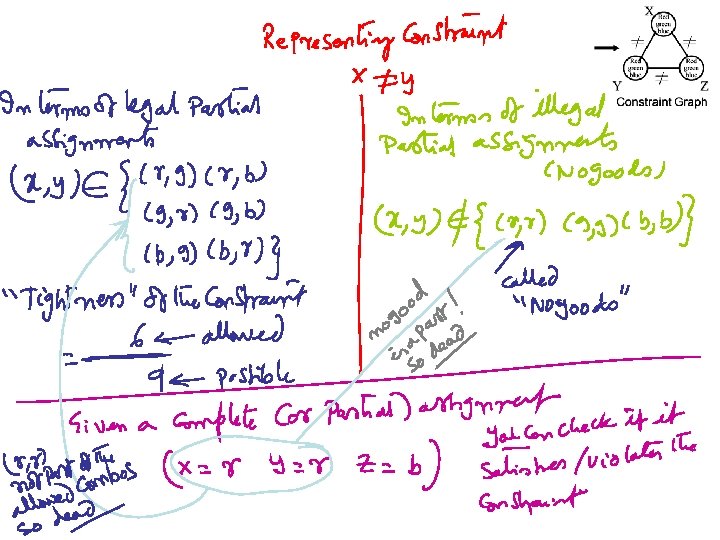 Representing Constraint
X ≠ y
X
Red
green
blue
≠ ≠
Red
green
blue
≠
Red
green
blue
Y Z
Constraint Graph
In terms of legal Partial
assignments
(x,y) ∈ { (r,g) (r,b)
(g,r) (g,b)
(b,g) (b,r) }
"Tightness" of the Constraint
= 6 ← allowed
9 ← possible
In terms of illegal
Partial assignments
(Nogoods)
(x,y) ∉ { (r,r) (g,g) (b,b) }
called
"Nogoods"
nogood
is a part!
so dead
Given a complete (or Partial) assignment
(x = r y = r z = b)
you can check if it
satisfies/violates the
constraint
(r,r)
not part of the
allowed combos
so dead